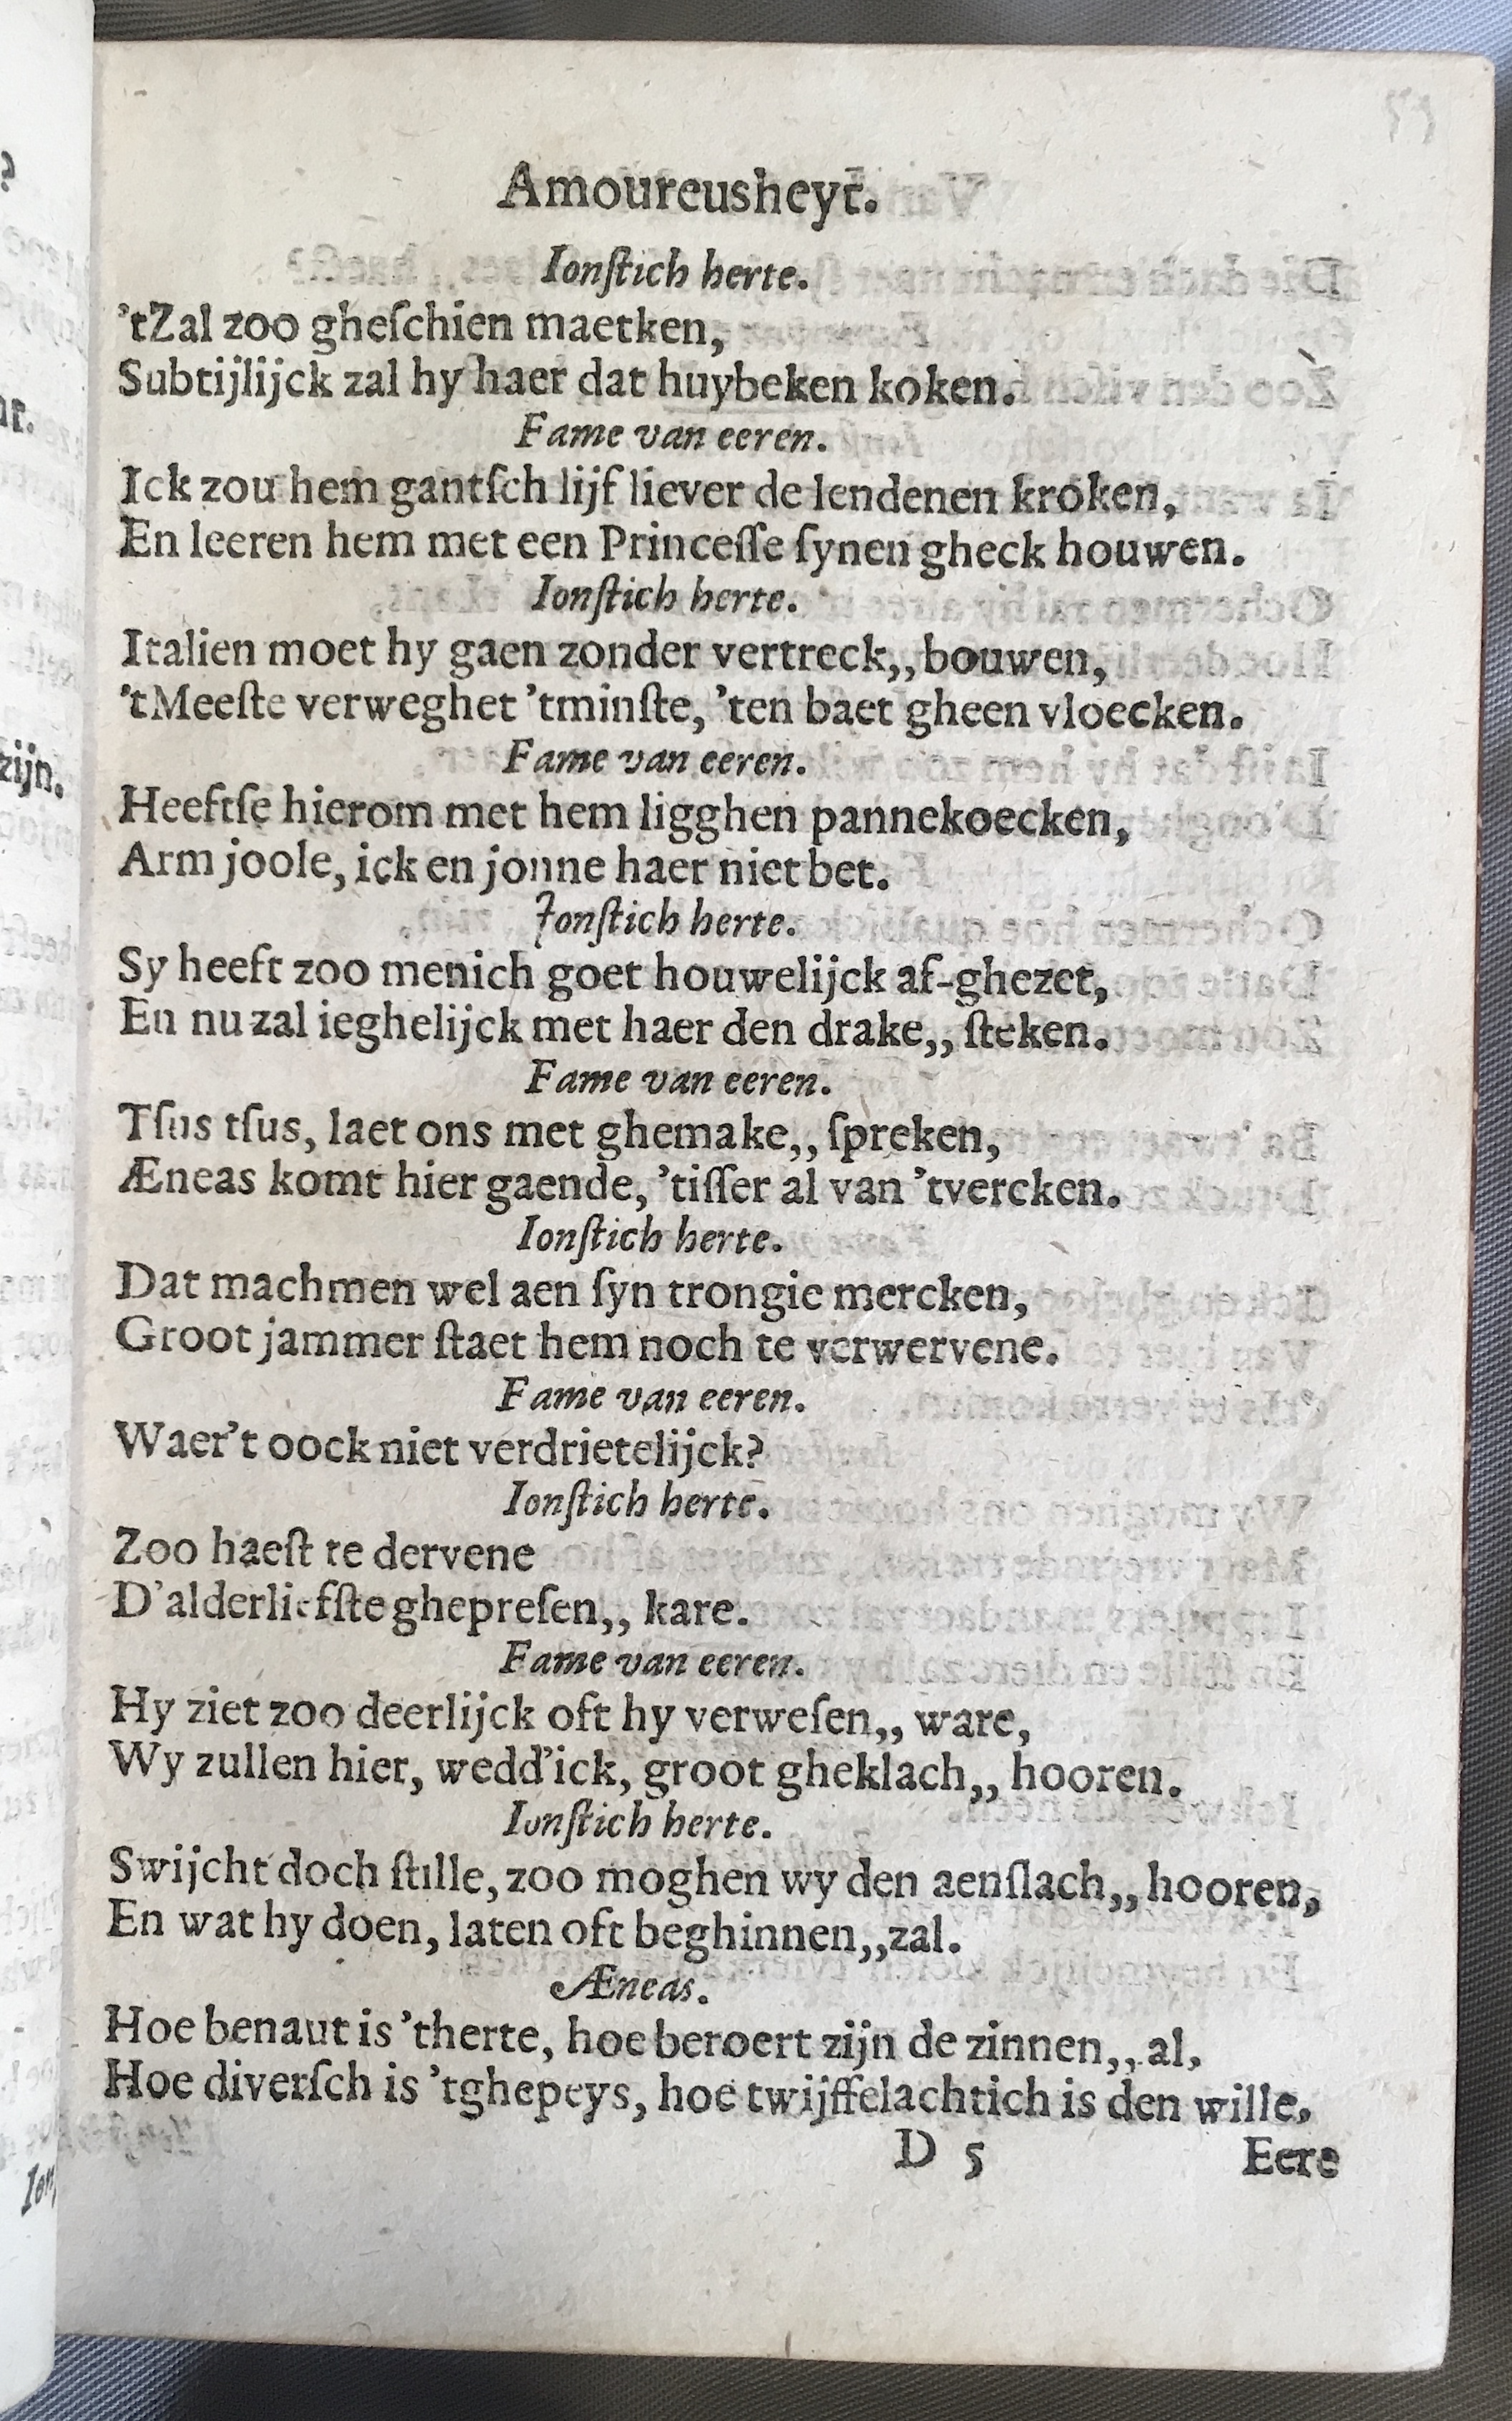 Amoureusheyt.
Ionſtich herte.
'tZal zoo gheſchien maetken,
Subtijlijck zal hy haer dat huybeken koken.
Fame van eeren.
Ick zou hem gantſch lijf liever de lendenen kroken,
En leeren hem met een Princeſſe ſynen gheck houwen.
Ionſtich herte.
Italien moet hy gaen zonder vertreck,,bouwen,
'tMeeſte verweghet 'tminſte, 'ten baet gheen vloecken.
Fame van eeren.
Heeftſe hierom met hem ligghen pannekoecken,
Arm joole, ick en jonne haer niet bet.
Jonſtich herte.
Sy heeft zoo menich goet houwelijck af-ghezet,
En nu zal ieghelijck met haer den drake,, ſteken.
Fame van eeren.
Tſus tſus, laet ons met ghemake,, ſpreken,
Æneas komt hier gaende, 'tiſſer al van 'tvercken.
Ionſtich herte.
Dat machmen wel aen ſyn trongie mercken,
Groot jammer ſtaet hem noch te verwervene.
Fame van eeren.
Waer't oock niet verdrietelijck?
Ionſtich herte.
Zoo haeſt te dervene
D'alderliefſte ghepreſen,, kare.
Fame van eeren.
Hy ziet zoo deerlijck oft hy verweſen,, ware,
Wy zullen hier, wedd'ick, groot gheklach,, hooren.
Ionſtich herte.
Swijcht doch ſtille, zoo moghen wy den aenſlach,, hooren,
En wat hy doen, laten oft beghinnen,,zal.
Æneas.
Hoe benaut is 'therte, hoe beroert zijn de zinnen,, al,
Hoe diverſch is 'tghepeys, hoe twijffelachtich is den wille,
D 5
Eere